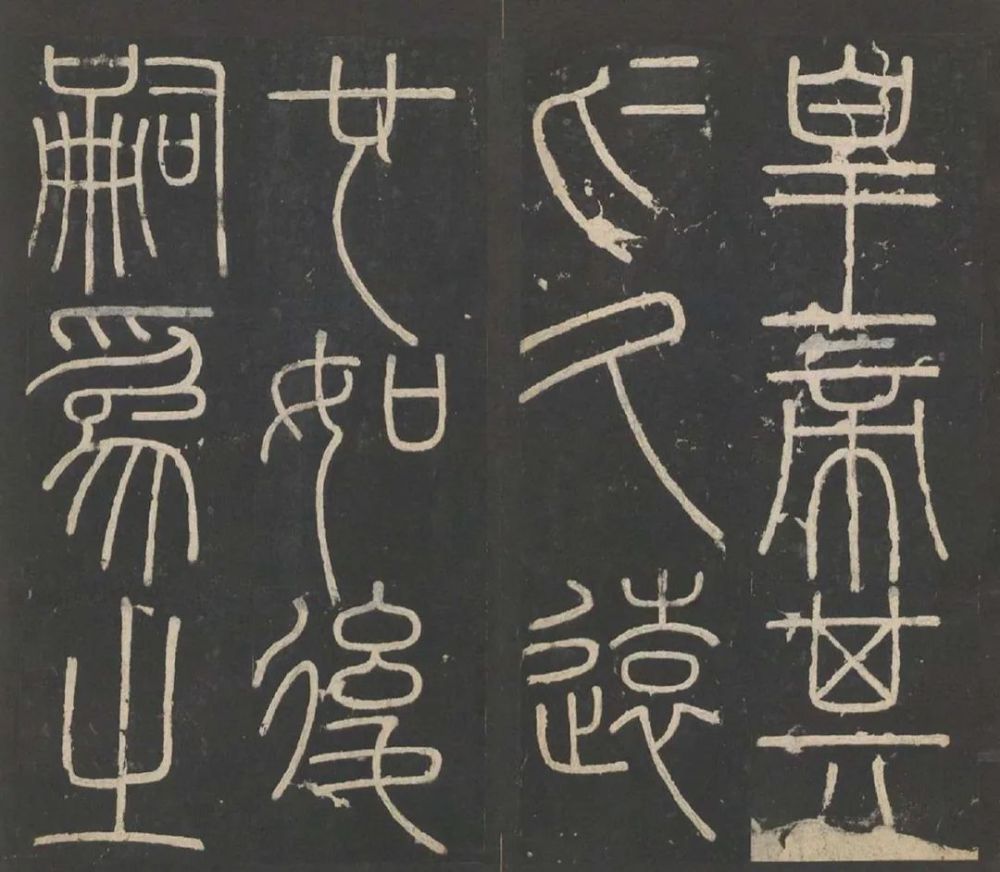 皇帝其
於久遠
也如後
嗣爲之